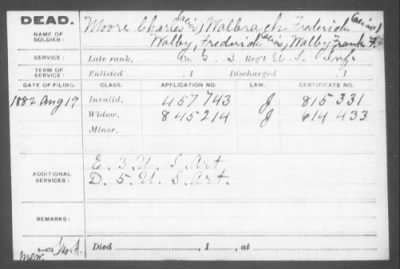 DEAD.
Moore Charles (alias) Walbrach Frederick (alias)
NAME OF SOLDIER:
Walby, Frederick (alias) Walby Frank F.
SERVICE: Late rank, Co. G, 3 Reg't U.S.
TERM OF SERVICE: Enlisted , 1 Discharged , 1
DATE OF FILING. CLASS. APPLICATION NO. LAW. CERTIFICATE NO.
1882 Aug 19 Invalid, 457743 J 815331
Widow, 845214 J 614433
Minor,
ADDITIONAL SERVICES:
E. 3. U. S. Art.
D. 5. U. S. Art.
REMARKS:
Died , 1 , at